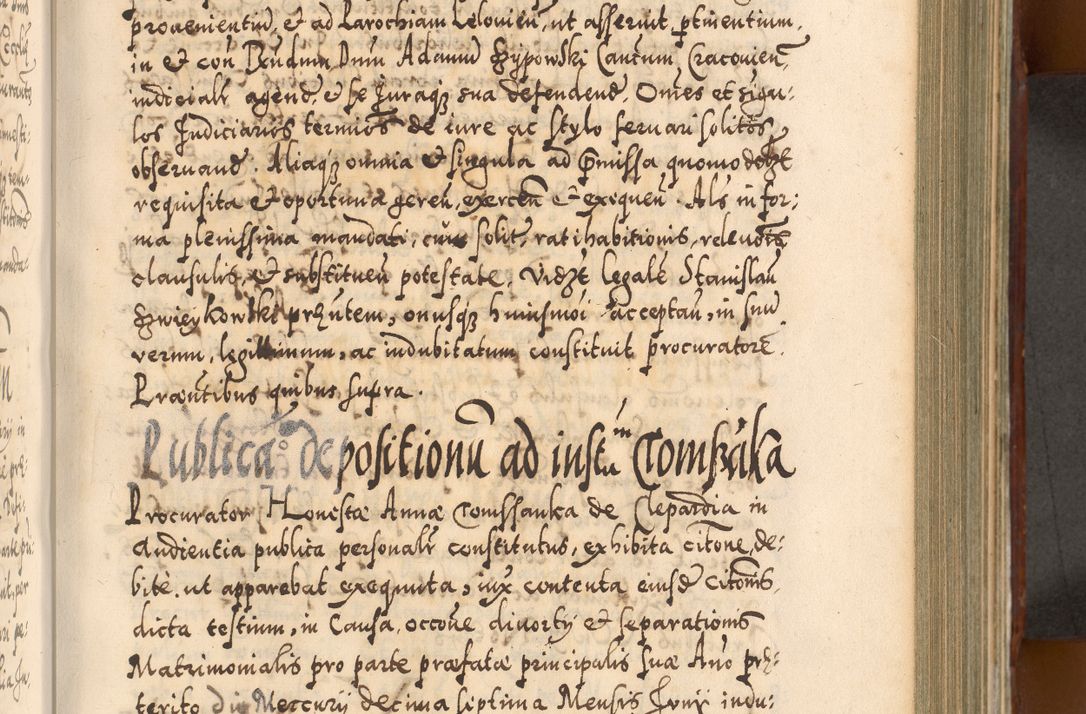 provenientiu, et ad Parochiam Lelovieñ, ut asseruit ptinentium,
in et con Dnum Adamu Szypowski Cancum Cracovien,
iudicialr agend, et se Juraqз sua defendend. Omes et singu-
los Judiciarios termios de iure ac stylo servari solitos
observand. Aliaqз omnia et singula ad pmissa quomodolzt
requisita et oportuna geren, exercen et exequen. Als in for-
ma plenissima mandati, cum solit, ratihabitionis, relevois
clausulis, et substituen potestate. Vidzt legale Stanislau
Szwieykowski przntem, onusqз huiusmoi acceptan, in suu
verum, legittimum, ac indubitatum constituit procuratore.
Præntibus quibus supra.
Publica depositionu ad instam Tomszaka
Procurator Honestæ Annæ Tomssanka de Clepardia in
Audientia publica personalr constitutus, exhibita citone, de-
bite, ut apparebat exequuta, iux contenta eiusd Citonis,
dicta testium, in Causa, occone divorty et separationis
Matrimonialis pro parte præfatæ principalis suæ Ano præ-
terito die Mercurij decima septima Mensis Junij indu-